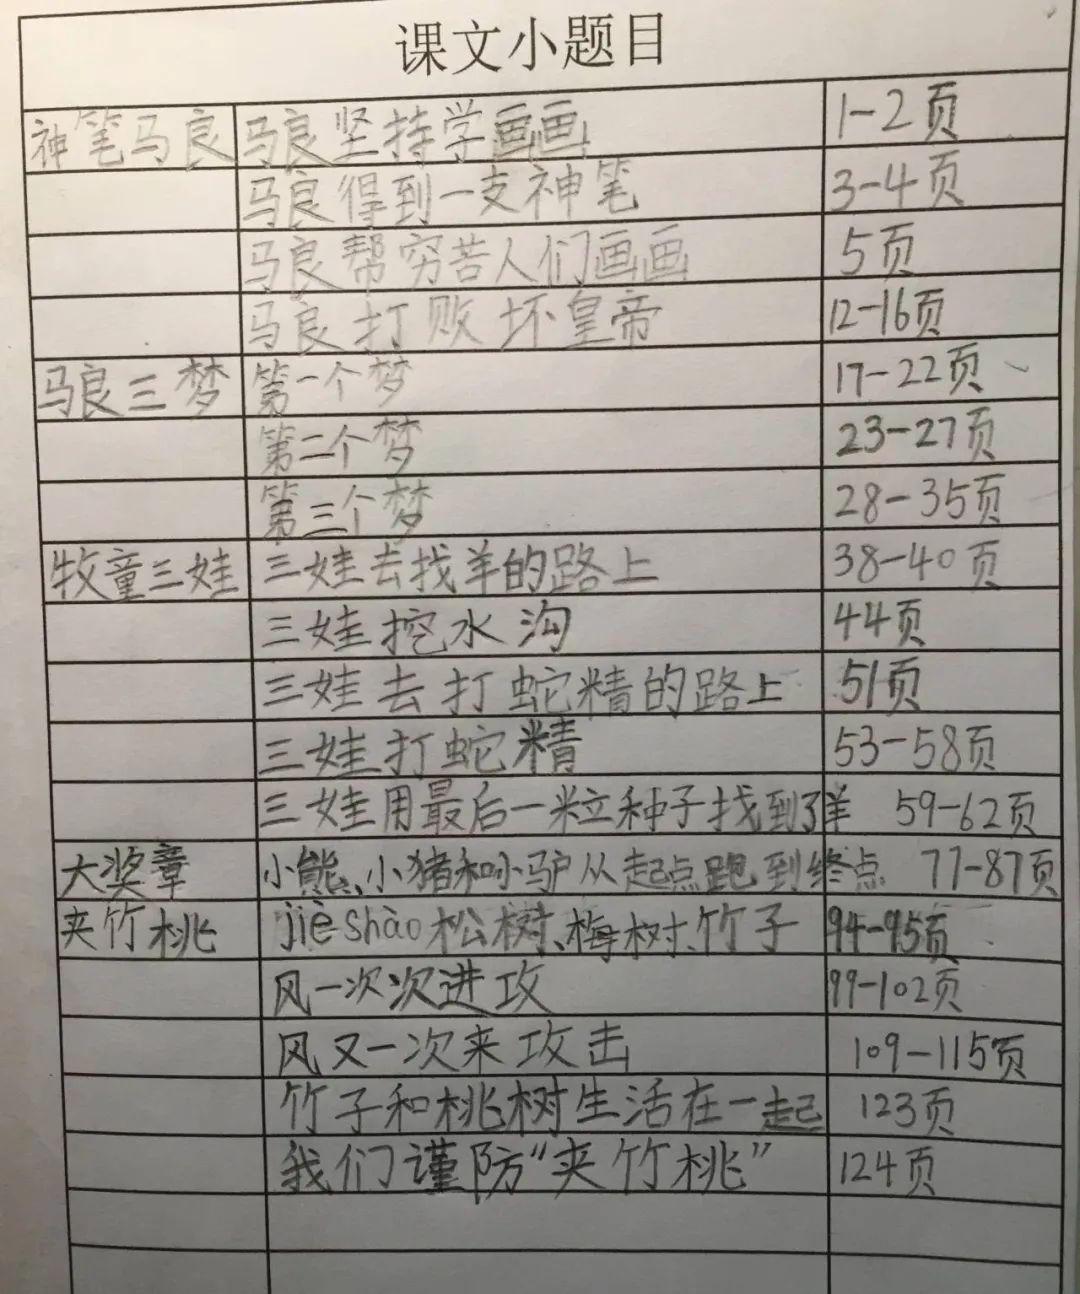 课文小题目
神笔马良 马良坚持学画画 1-2页
马良得到一支神笔 3-4页
马良帮穷苦人们画画 5页
马良打败坏皇帝 12-16页
马良三梦 第一个梦 17-22页
第二个梦 23-27页
第三个梦 28-35页
牧童三娃 三娃去找羊的路上 38-40页
三娃挖水沟 44页
三娃去打蛇精的路上 51页
三娃打蛇精 53-58页
三娃用最后一粒种子找到了羊 59-62页
大奖章 小熊、小猪和小驴从起点跑到终点 77-87页
夹竹桃 jiè shào松树、梅树、竹子 94-95页
风一次次进攻 99-102页
风又一次来攻击 109-115页
竹子和桃树生活在一起 123页
我们谨防“夹竹桃” 124页